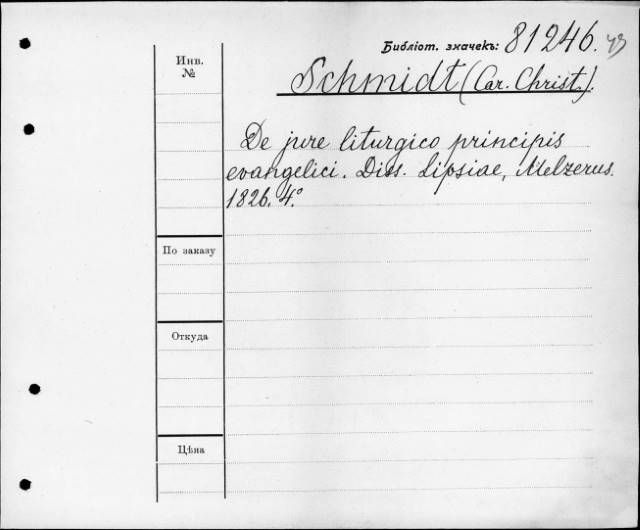 Библіот. значекъ: 81246.
Инв.
№
Schmidt (Car. Christ.).
De jure liturgico principis
evangelici. Diss. Lipsiae, Melzerus.
1826. 4°
По заказу
Откуда
Цѣна